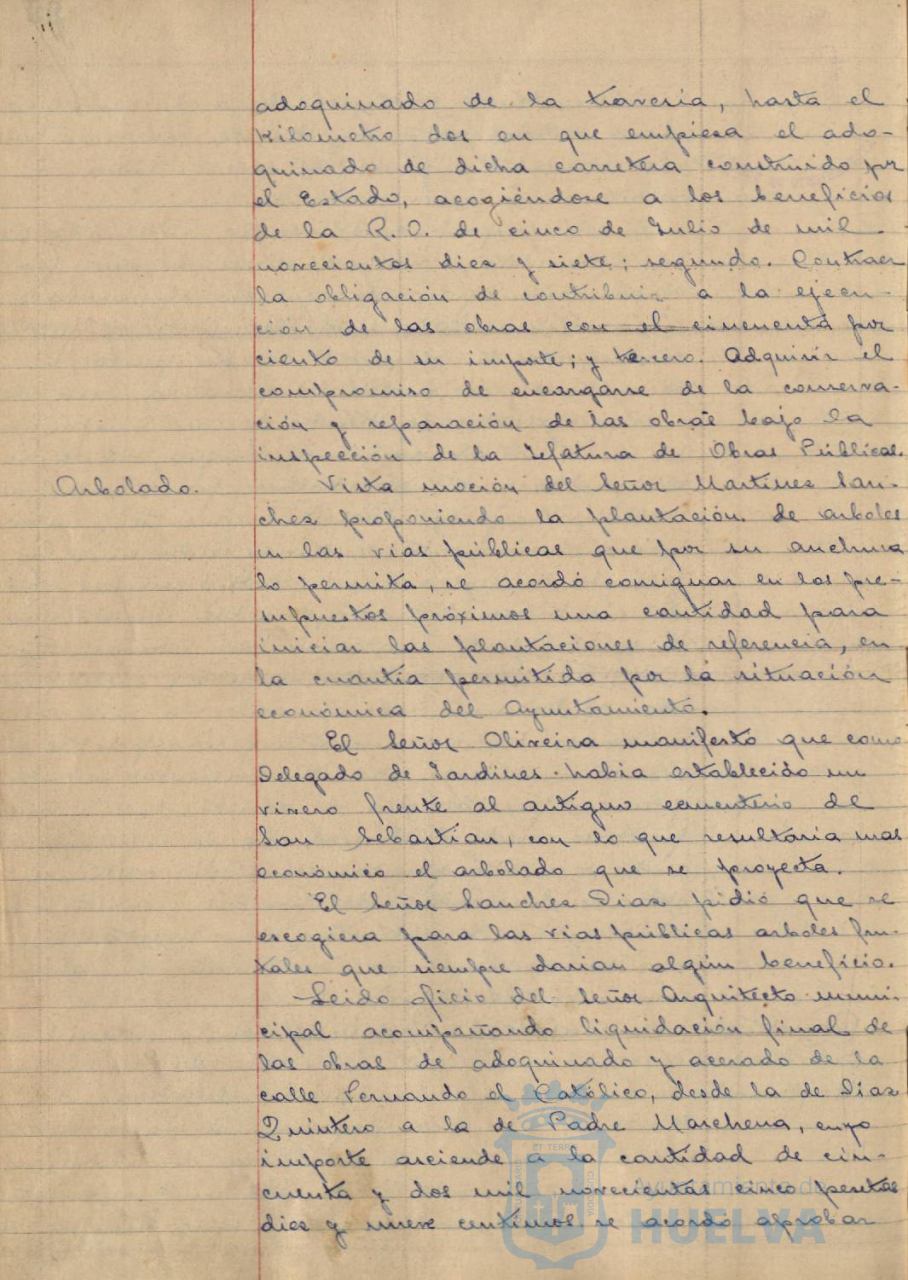 adoquinado de la travesia, hasta el
kilometro dos en que empieza el ado-
quinado de dicha carretera construido por
el Estado, acogiéndose a los beneficios
de la R.O. de cinco de Julio de mil
novecientos diez y siete; segundo. Contraer
la obligación de contribuir a la ejecu-
ción de las obras con el cincuenta por
ciento de su importe; y tercero. Adquirir el
compromiso de encargarse de la conserva-
ción y reparación de las obras bajo la
inspección de la Jefatura de Obras Públicas.
Arbolado. Vista moción del Señor Martinez San-
chez proponiendo la plantación de arboles
en las vias públicas que por su anchura
lo permita, se acordó consignar en los pre-
supuestos próximos una cantidad para
iniciar las plantaciones de referencia, en
la cuantía permitida por la situación
económica del Ayuntamiento.
El Señor Oliveira manifesto que como
Delegado de Jardines habia establecido un
vivero frente al antiguo cementerio de
San Sebastian, con lo que resultaria mas
económico el arbolado que se proyecta.
El Señor Sanchez Diaz pidió que se
escogiera para las vias públicas arboles fru-
tales que siempre darian algún beneficio.
Leido oficio del Señor Arquitecto muni-
cipal acompañando liquidación final de
las obras de adoquinado y acerado de la
calle Fernando el Católico, desde la de Diaz
Quintero a la de Padre Marchena, cuyo
importe asciende a la cantidad de cin-
cuenta y dos mil novecientas cinco pesetas
diez y nueve centimos se acordo aprobar
Ayuntamiento de
HUELVA